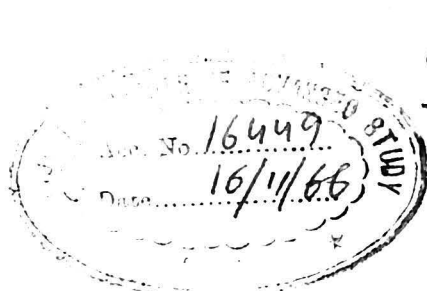 OF ADVANCED STUDY
Acc. No. 16449
Date 16/11/66